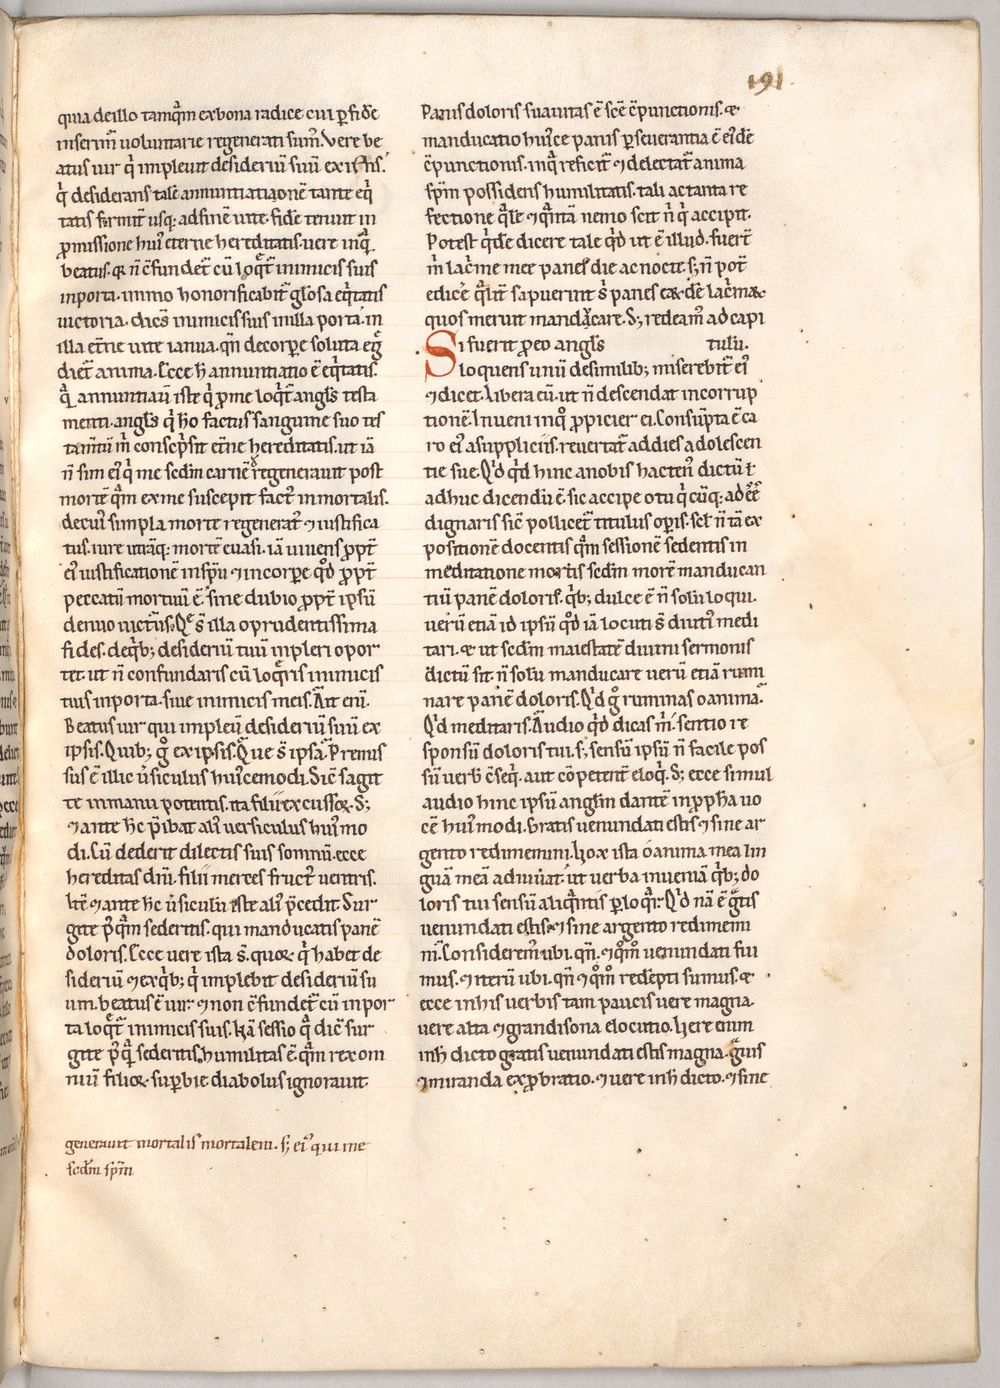 191
quia de illo tamq̄m ex bona radice cui ꝑ fidē
inserim̄ voluntarie regenerati sum᷒. Vere be
atus uir q̇ impleuit desideriū suū ex istis.
q̇ desiderans talē annuntiationē tante eq̇
tatis firmit̄ usq; ad finē uite. fidē tenuit in
ꝓmissione hui᷒ eterne hereditatis. uere inq̄
beatus. qr̄ n̄ ↄ̄fundet᷑ cū loq̄t᷑ inimicis suis
in porta. immo honorificabit᷑ gl̄osa eq̇tatis
uictoria. dicēs inimicis suis in illa porta. in
illa et̄ne uite ianua. qn̄ de corꝑe soluta eg̊
diet᷑ anima. Ecce h̄ annuntiatio ē eq̇tatis.
q̄ annuntiauit iste q̇ ꝓ me loq̄t᷑ angl̄s testa
menti. angl̄s q̇ ho factus sanguine suo tes
tam̄tū m̄ consċpsit et̄ne hereditatis. ut iā
n̄ sim ei᷒ q̇ me sc̄dm carnē regenerauit post
mortē q̄m ex me suscepit fact᷒ inmortalis.
de cui᷒ simpla morte regenerat᷒ ⁊ iustifica
tus. iure utāq; mortē euasi. iā uiuens ꝓpt̄
ei᷒ iustificationē in sp̄u ⁊ in corꝑe qd̊ ꝓpt̄
peccatū mortuū ē. sine dubio ꝓpt̄ ipsū
denuo uictur᷒. Que s̄ illa o prudentissima
fides. de q̇b; desideriū tuū inpleri opor
tet. ut n̄ confundaris cū loq̄ris inimicis
tuis in porta. siue inimicis meis. Ait eni.
Beatus uir qui impleuit desideriū suū ex
ipsis. Quib; g̊ ex ipsis. Que s̄ ipsa. Premis
sus ē illic ūsiculus hui᷒cemodi. Sic̄ sagit
te in manu potentis. ita filii excussoꝝ. S;
⁊ ante h̄c p̄ibat ali᷒ uersiculus hui᷒ mo
di. Cū dederit dilectis suis somnū. ecce
hereditas dn̄i. filii merces fruct᷒ uentris.
Itē ⁊ ante h̄c ūsiculū iste ali᷒ p̄cedit. Sur
gite p᷒q̄m sederitis. qui manducatis panē
doloris. Ecce uere ista s̄. quoꝝ q̇ habet de
sideriū ⁊ ex q̇b; q̇ implebit desideriū su
um. beatus ē uir. ⁊ non ↄ̄fundet᷑ cū in por
ta loq̄t᷑ inimicis suis. Nā sessio q̄ dic̄ sur
gite p᷒q̄ sederitis. humilitas ē q̄m rex om
niū filioꝝ suꝑbie diabolus ignorauit.
generauit mortalis mortalem. s; ei᷒ qui me
sc̄dm sp̄m
Panis doloris suauitas ē sc̄e ↄ̄punctionis. &
manducatio hui᷒ce panis ꝑseuerantia ē ei᷒dē
ↄ̄punctionis. in q̄ reficit᷑ ⁊ delectat᷑ anima
sp̄m possidens humilitatis. tali ac tanta re
fectione q̄le ⁊ q̄ntā nemo scit n̄ q̇ accipit.
Potest q̇dē dicere tale qḋ ut ē illud. fuert̄
m̄ lac̄me mee panes die ac nocte. s; n̄ pot̄
edic̄e q̄lit̄ sapuerint s̄ panes eꝝdē lac̄maꝝ
quos meruit manducare. S; redeam᷒ ad capi
tulū.
Si fuerit pro eo angl̄s
loquens unū de similib; miserebit᷑ ei᷒
⁊ dicet. Libera eū. ut n̄ descendat in corrup
tionē. Inueni in quo propicier ei. Consūpta ē ca
ro ei᷒ a suppliciis. reuertat᷑ ad dies adolescen
tie sue. Qḋ qḋ hinc a nobis hacten᷒ dictū t̄
adhuc dicendū ē. sic accipe o tu q̇cūq; adeē
dignaris sic̄ pollicet᷑ titulus opis. scl̄ n̄ tā ex
positionē docentis q̄m sessionē sedentis in
meditatione mortis sc̄dm morē manducan
tiū panē doloris. q̇b; dulce ē n̄ solū loqui.
uerū etiā id ipsū qd̊ iā locuti s̄ diuti᷒ medi
tari. & ut sc̄dm maiestatē diuini sermonis
dictū sit. n̄ solū manducare uerū etiā rumi
nare panē doloris. Qḋ g̊ ruminas o anima.
Qḋ meditaris. Audio qḋ dicas m̄. sentio re
sponsū doloris tui. s; sensū ipsū n̄ facile pos
sū uerb̄ ↄ̄seq̇. aut cōpetent̄ eloq̇. S; ecce simul
audio hinc ipsū angl̄m dantē in ꝓpha uo
cē hui᷒modi. Gratis uenundati estis ⁊ sine ar
gento redimemini. Uox ista o anima mea lin
guā meā adiuuat. ut uerba inueniā q̇b; do
loris tui sensū aliq̄ntis ꝑ loq̄r. Qḋ nā ē g̊tis
uenundati estis ⁊ sine argento redimemi
ni. Considerem᷒ ubi. qn̄. ⁊ qm̊o uenundati fui
mus. ⁊ iterū ubi. qn̄ ⁊ qm̊o redēpti sumus. &
ecce in his uerbis tam paucis uere magna
uere alta ⁊ grandisona elocutio. Uere enim
in h̄ dicto gratis uenundati estis magna. g̊uis
⁊ miranda exꝓbratio. ⁊ uere in h̄ dicto. ⁊ sine